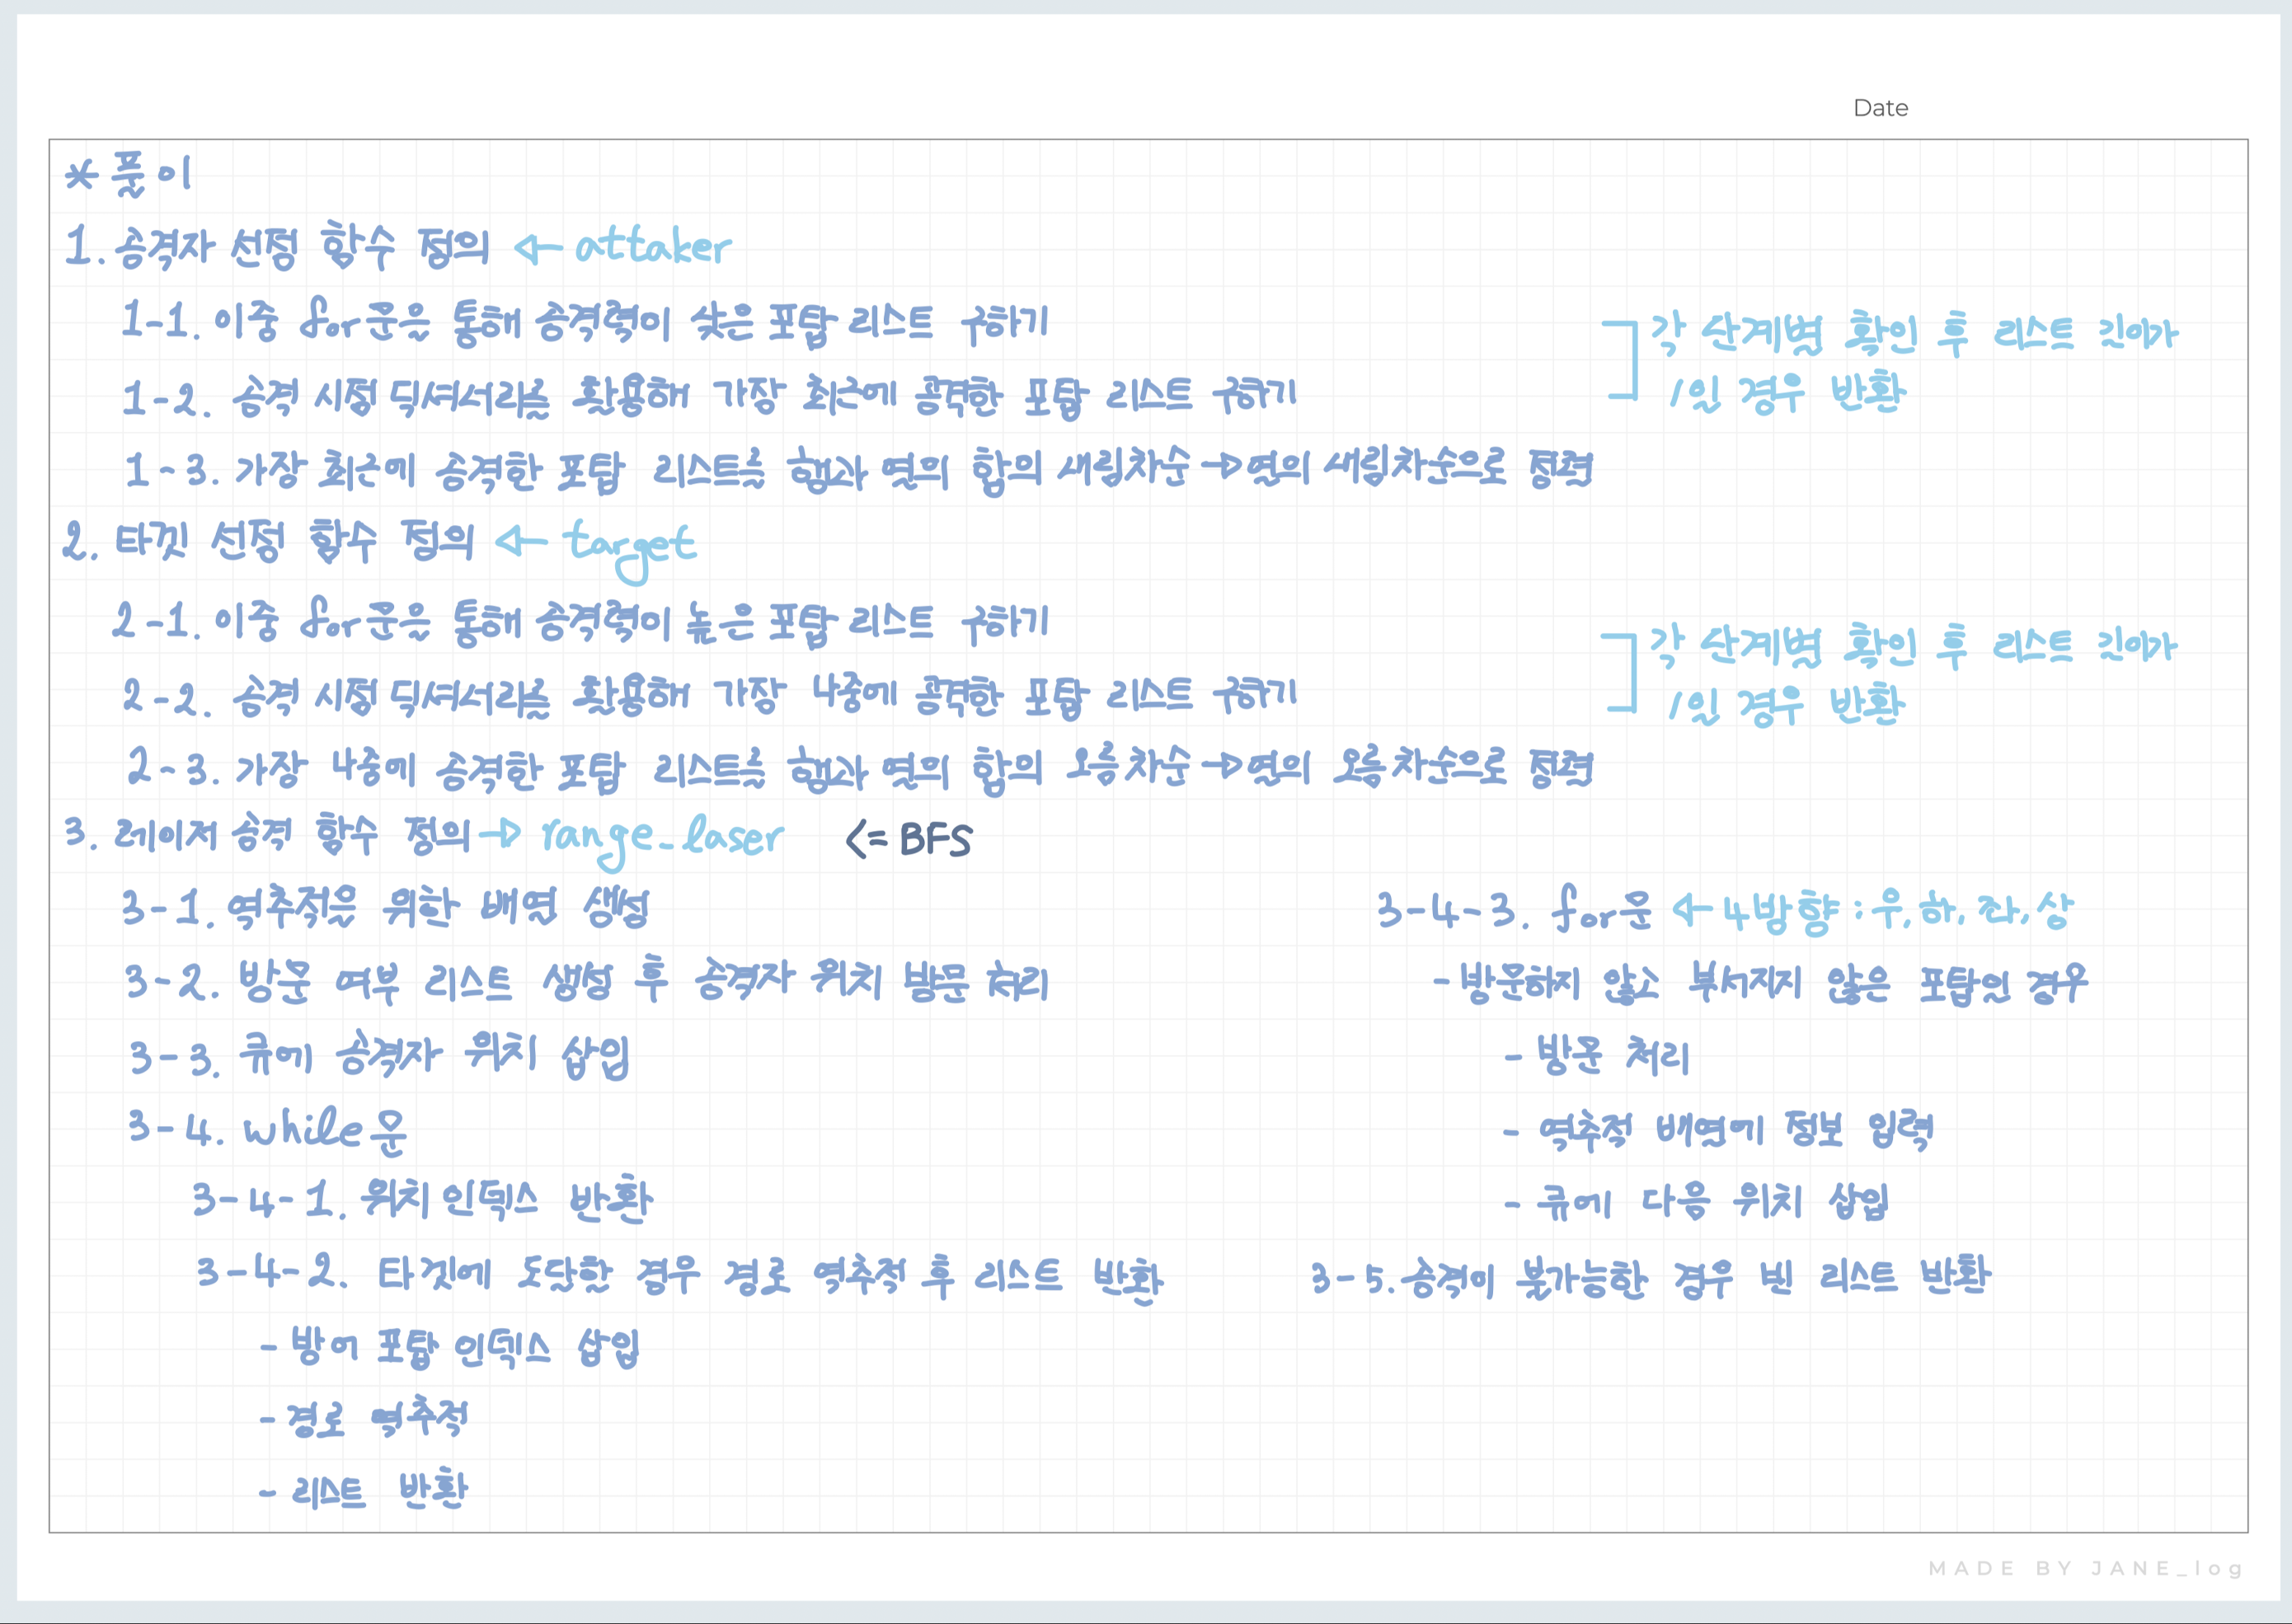 Date
* 풀이
1. 공격자 선정 함수 정의 ← attaker
1-1. 이중 for문을 통해 공격력이 낮은 포탑 리스트 구하기
1-2. 공격 시점 딕셔너리를 활용해 가장 최근에 공격한 포탑 리스트 구하기
각 단계별 확인 후 리스트 길이가
1인 경우 반환
1-3. 가장 최근에 공격한 포탑 리스트로 행과 열의 합의 내림차순 → 열의 내림차순으로 정렬
2. 타깃 선정 함수 정의 ← target
2-1. 이중 for문을 통해 공격력이 높은 포탑 리스트 구하기
2-2. 공격 시점 딕셔너리를 활용해 가장 나중에 공격한 포탑 리스트 구하기
각 단계별 확인 후 리스트 길이가
1인 경우 반환
2-3. 가장 나중에 공격한 포탑 리스트로 행과 열의 합의 오름차순 → 열의 오름차순으로 정렬
3. 레이저 공격 함수 정의 → range_laser <= BFS
3-1. 역추적을 위한 배열 생성
3-2. 방문 여부 리스트 생성 후 공격자 위치 방문 처리
3-3. 큐에 공격자 위치 삽입
3-4. while문
3-4-1. 위치 인덱스 반환
3-4-2. 타깃에 도달한 경우 경로 역추적 후 리스트 반환
- 방어 포탑 인덱스 삽입
- 경로 역추적
- 리스트 반환
3-4-3. for문 ← 4방향 : 우, 하, 좌, 상
- 방문하지 않고 부서지지 않은 포탑인 경우
- 방문 처리
- 역추적 배열에 정보 입력
- 큐에 다음 위치 삽입
3-5. 공격이 불가능한 경우 빈 리스트 반환
MADE BY JANE_log